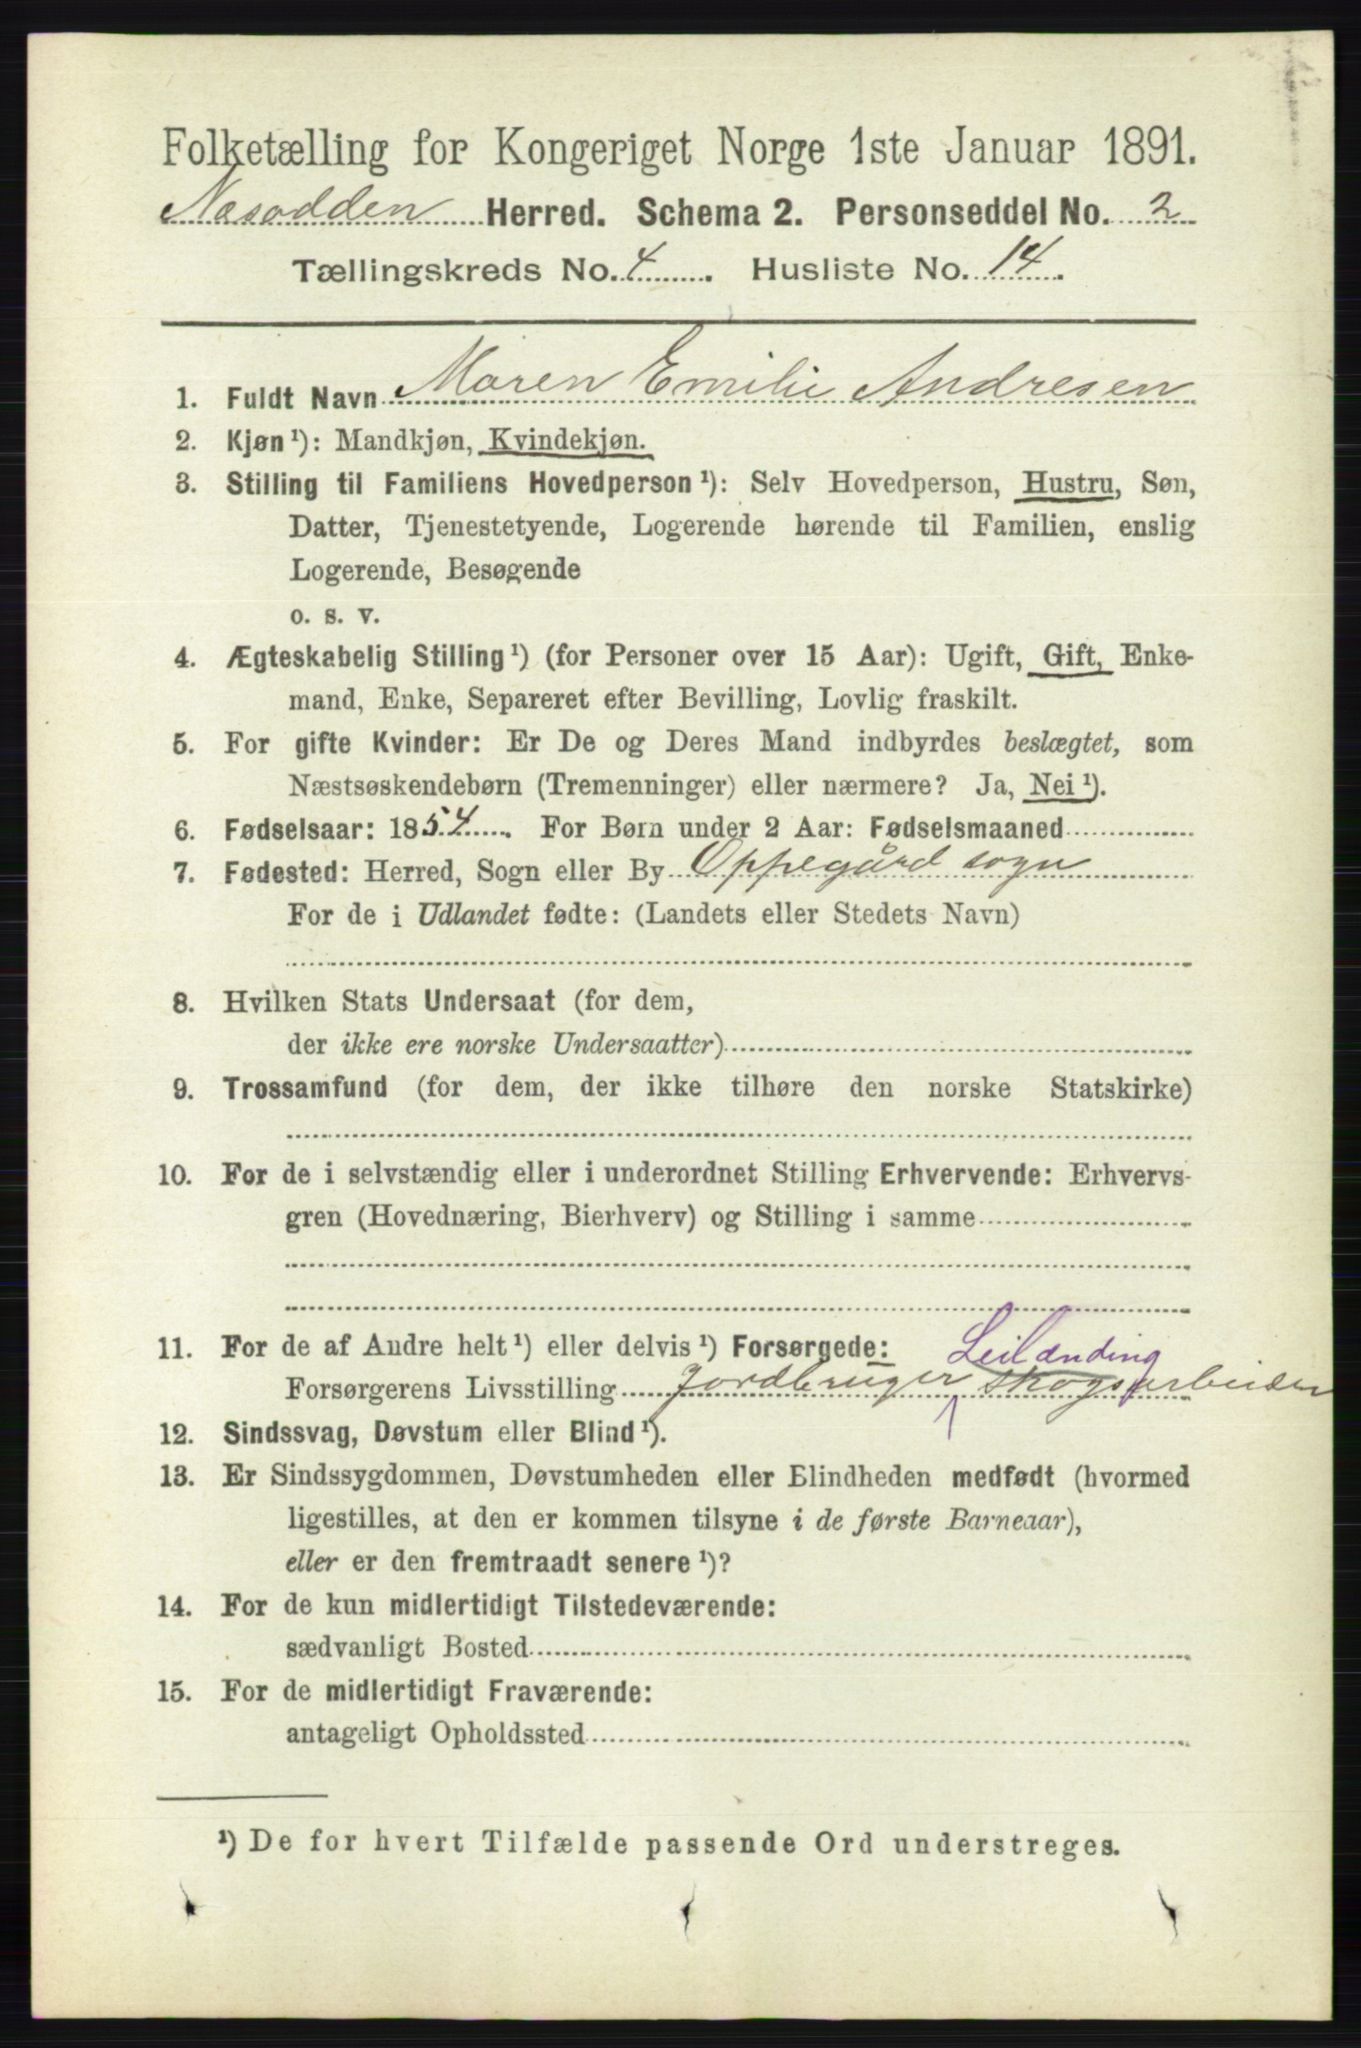 Folketælling for Kongeriget Norge 1ste Januar 1891.
Næsodden Herred. Schema 2. Personseddel No. 2
Tællingskreds No. 4. Husliste No. 14.
1. Fuldt Navn Maren Emilie Andresen
2. Kjøn¹): Mandkjøn, Kvindekjøn.
3. Stilling til Familiens Hovedperson¹): Selv Hovedperson, Hustru, Søn,
Datter, Tjenestetyende, Logerende hørende til Familien, enslig
Logerende, Besøgende
o. s. v.
4. Ægteskabelig Stilling¹) (for Personer over 15 Aar): Ugift, Gift, Enke-
mand, Enke, Separeret efter Bevilling, Lovlig fraskilt.
5. For gifte Kvinder: Er De og Deres Mand indbyrdes beslægtet, som
Næstsøskendebørn (Tremenninger) eller nærmere? Ja, Nei¹).
6. Fødselsaar: 1854. For Børn under 2 Aar: Fødselsmaaned
7. Fødested: Herred, Sogn eller By Oppegård sogn
For de i Udlandet fødte: (Landets eller Stedets Navn)
8. Hvilken Stats Undersaat (for dem,
der ikke ere norske Undersaatter)
9. Trossamfund (for dem, der ikke tilhøre den norske Statskirke)
10. For de i selvstændig eller i underordnet Stilling Erhvervende: Erhvervs-
gren (Hovednæring, Bierhverv) og Stilling i samme
11. For de af Andre helt¹) eller delvis¹) Forsørgede:
Leilænding
Forsørgerens Livsstilling Jordbruger skogsarbeider
12. Sindssvag, Døvstum eller Blind¹).
13. Er Sindssygdommen, Døvstumheden eller Blindheden medfødt (hvormed
ligestilles, at den er kommen tilsyne i de første Barneaar),
eller er den fremtraadt senere¹)?
14. For de kun midlertidigt Tilstedeværende:
sædvanligt Bosted
15. For de midlertidigt Fraværende:
antageligt Opholdssted
¹) De for hvert Tilfælde passende Ord understreges.